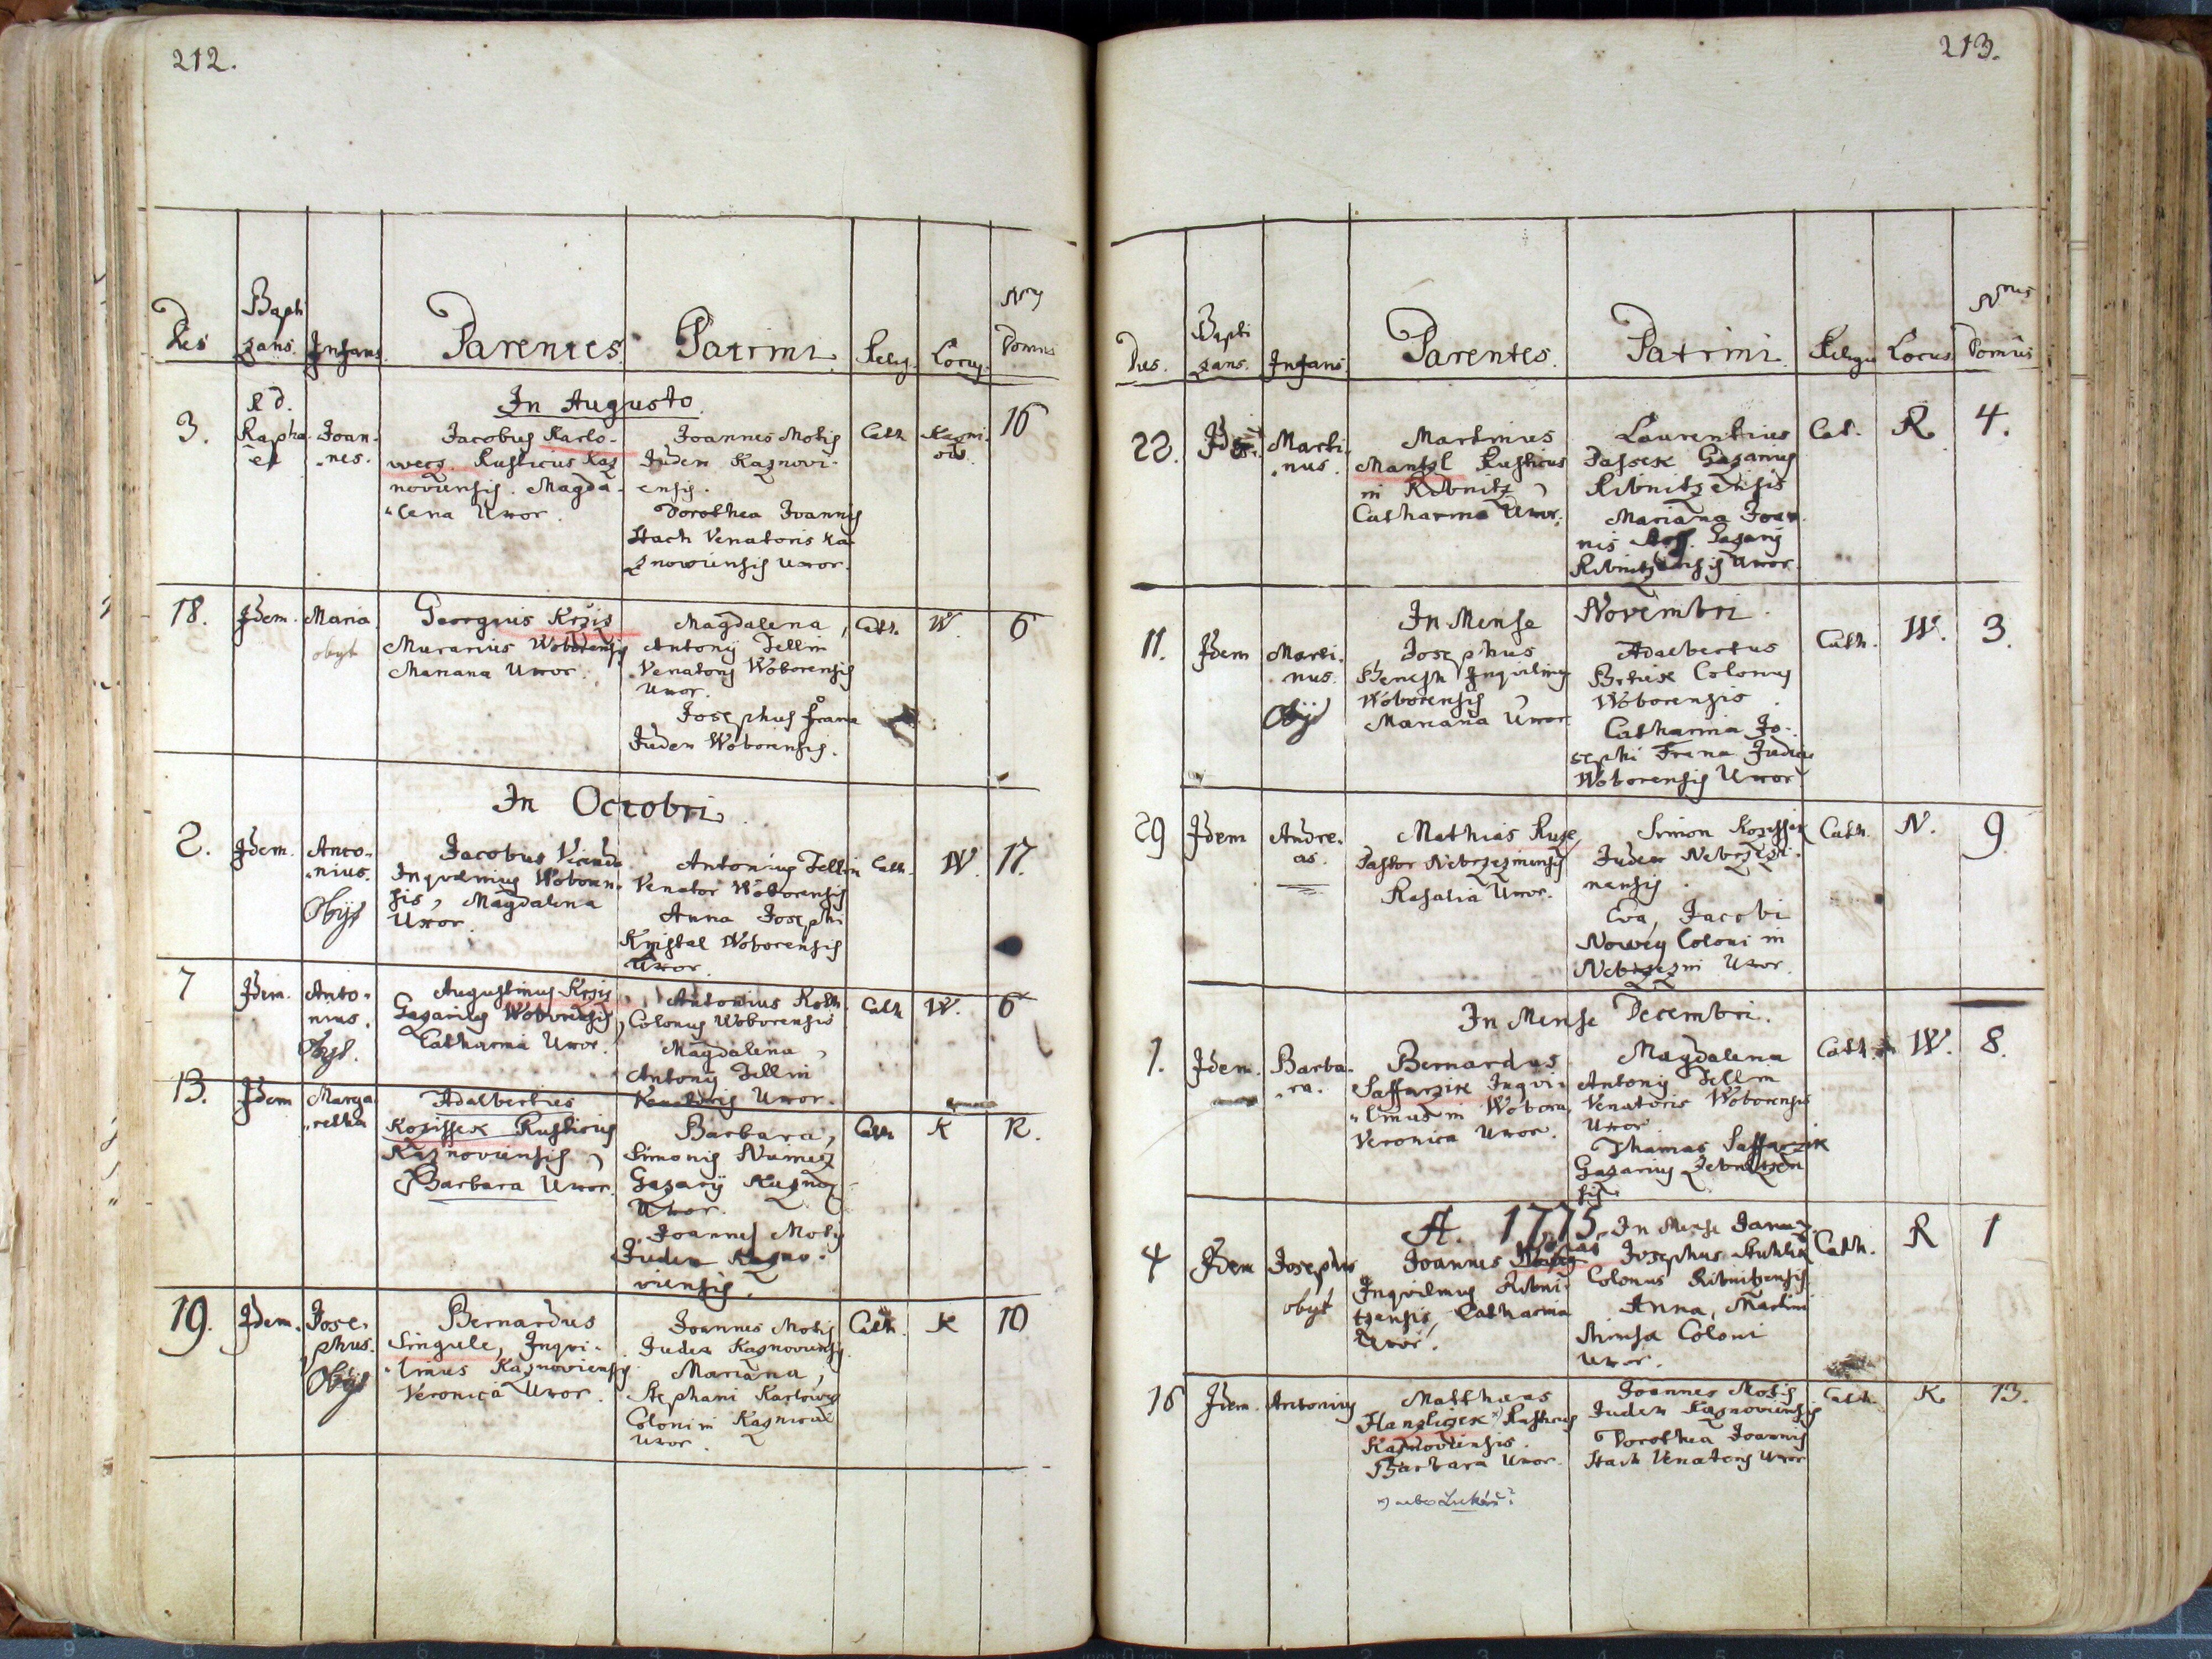 212.
Dies
Bapti
zans.
Infans
Parentes
Patrini
Relig.
Locus
Nrus
Domus
In Augusto.
3.
R D.
Rapha
el
Joan-
nes.
Jacobus Karlo-
wecz. Rusticus Kaz
noviensis. Magda-
lena Uxor.
Joannes Motis
Judex Kaznovi-
ensis.
Dorothea Joannis
Hach Venatoris Ka-
znoviensis Uxor.
Cath
Kazni-
16
18.
Idem.
Maria
obyt
Georgius Krzis
Murarius Woborensis
Mariana Uxor.
Magdalena,
Antonij Jellin
Venatoris Woborensis
Uxor.
Josephus Frana
Judex Woborensis.
Cath.
W.
6
In Octobri
2.
Idem.
Anto-
nius.
Obijt
Jacobus
Inquilinus Woboren-
sis, Magdalena
Uxor.
Antonius Jellin
Venator Woborensis
Anna Josephi
Kristal Woborensis
Uxor.
Cath.
W.
17.
7
Idem.
Anto-
nius.
Obijt.
Augustinus Krzis
Gazarius Woborensis,
Catharina Uxor.
Antonius Koth
Colonus Woborensis
Magdalena,
Antonij Jellin
Venatoris Uxor.
Cath
W.
6
13.
Idem
Marga
retha
Adalbertus
Kozissek Rusticus
Kaznoviensis,
Barbara Uxor.
Barbara,
Simonis
Gazarij
Uxor.
Joannes Motis
Judex Kazno-
viensis.
Cath
K
12.
19.
Idem.
Jose-
phus.
Obijt
Bernardus
Singule, Inqui-
linus Kaznoviensis
Veronica Uxor.
Joannes Motis
Judex Kaznoviensis.
Mariana,
Stephani Karlowecz
Coloni in
Uxor.
Cath.
K
10
213.
Dies.
Bapti
zans.
Infans.
Parentes.
Patrini
Religio
Locus
Nrus
Domus
22.
Idem
Marti-
nus.
Martinus
Mantzl Rusticus
in Ribnitz,
Catharina Uxor.
Laurentius
Jassek Gazarius
Ribnitzensis
Mariana Joan
nis Gazarij
Ribnitzensis Uxor.
Cat.
R.
4.
In Mense Novembri.
11.
Idem
Marti-
nus.
Obijt
Josephus
Benesh Inquilinus
Woborensis,
Mariana Uxor
Adalbertus
Colonus
Woborensis.
Catharina Jo-
sephi Frana Judicis
Woborensis Uxor
Cath.
W.
3
29
Idem
Andre-
as.
Mathias Ruze
Pastor Nebrzezinensis
Rosalia Uxor.
Simon Kozissek
Judex Nebrzezi-
nensis.
Eva, Jacobi
Nowey Coloni in
Nebrzezin Uxor.
Cath.
N.
9
In Mense Decembri.
1.
Idem.
Barba-
ra.
Bernardus
Saffarzik Inqui-
linus in Wobora,
Veronica Uxor.
Magdalena
Antonij Jellin
Venatoris Woborensis
Uxor.
Thomas Saffarzik
Gazarius
sis
Cath.
W.
8.
A. 1775. In Mense Januar.
4
Idem
Josephus
obyt
Joannes
Inquilinus Ribni-
tzensis, Catharina
Uxor.
Josephus
Colonus Ribnitzensis
Anna, Martini
Coloni
Uxor.
Cath.
R
1
16
Idem.
Antonius
Matthaeus
Hanzlizek x) Rusticus
Kaznoviensis.
Barbara Uxor.
Joannes Motis
Judex Kaznoviensis
Dorothea Joannis
Hach Venatoris Uxor
Cath.
K.
13.
x) nebo Lukáš?